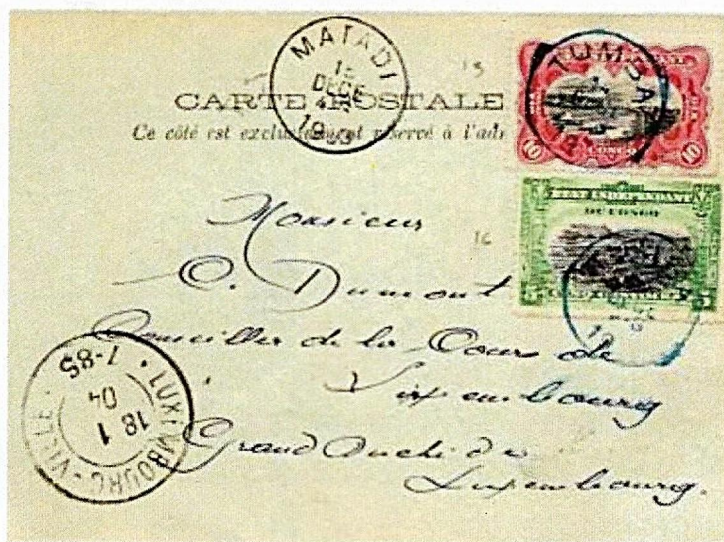 MATADI
15
DECE
1903
13
TUMBA
CARTE POSTALE
Ce côté est exclusivement réservé à l'adr
10 CONGO 10
ÉTAT INDÉPENDANT
DU CONGO
16
5 5
Monsieur
C. Dumont
Conseiller de la Cour de
Luxembourg
Grand Duché de
Luxembourg.
LUXEMBOURG-VILLE
18 1
04
7-8S